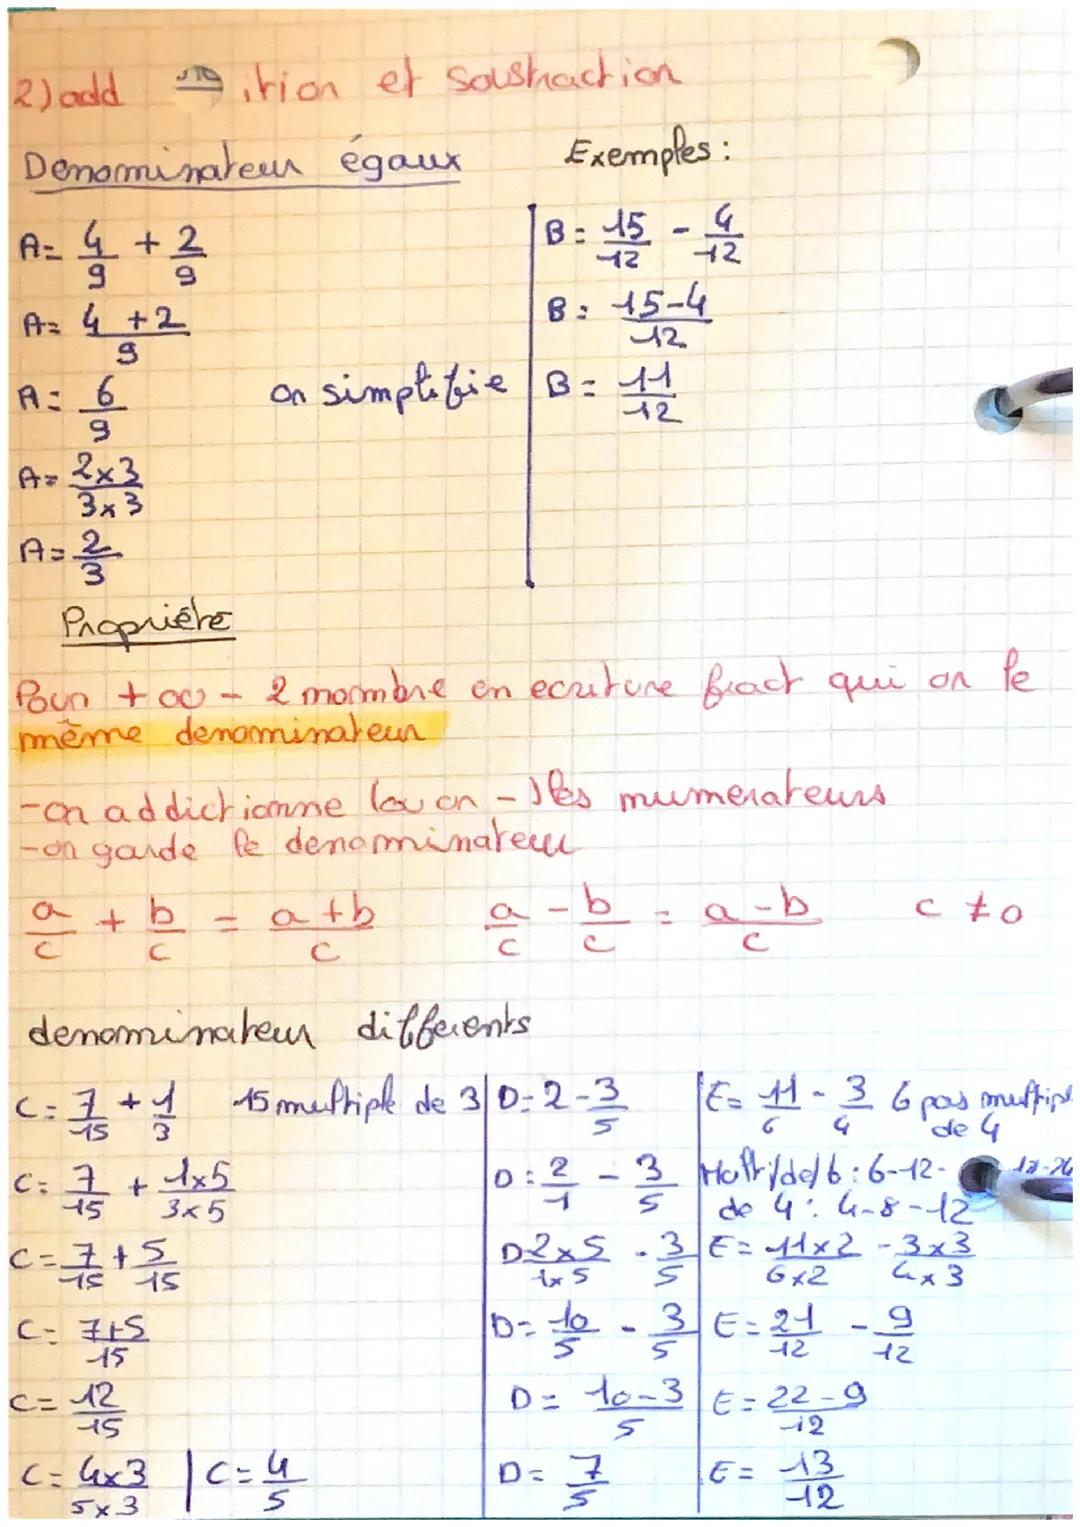 2) add ition et soustraction
Denominateur égaux
Exemples :
A= 4/9 + 2/9
A= 4+2/9
A= 6/9 on simplifie
A= 2x3/3x3
A= 2/3
B= 15/12 - 4/12
B= 15-4/12
B= 11/12
Propriété
Pour + ou - 2 nombre en ecriture fract qui on le
même denominateur
- on addictionne (ou on -) les numerateurs
- on garde le denominateur
a/c + b/c = a+b/c a/c - b/c = a-b/c c ≠ 0
denominateur differents
C= 7/15 + 1/3 15 multiple de 3
C= 7/15 + 1x5/3x5
C= 7/15 + 5/15
C= 7+5/15
C= 12/15
C= 4x3/5x3 | C= 4/5
D= 2 - 3/5
D= 2/1 - 3/5
D 2x5/1x5 - 3/5
D= 10/5 - 3/5
D= 10-3/5
D= 7/5
E= 11/6 - 3/4 6 pas multipl
de 4
Multi/de/6 : 6-12-
de 4 : 4-8-12
E= 11x2/6x2 - 3x3/4x3
E= 21/12 - 9/12
E= 22-9/12
E= 13/12